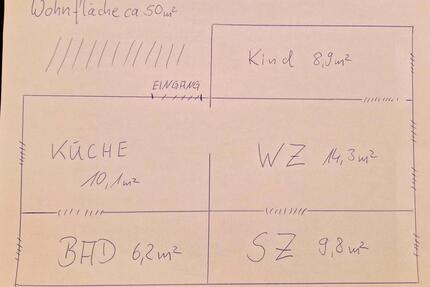 Wohnfläche ca 50m²
Kind 8,9m²
EINGANG
KÜCHE
10,1m²
WZ 14,3m²
BAD 6,2m²
SZ 9,8m²